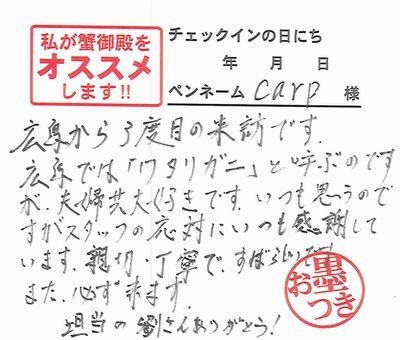 私が蟹御殿を
オススメ
します!!
チェックインの日にち
年 月 日
ペンネーム carp 様
広島から3度目の来訪です。
広島では「ワタリガニ」と呼ぶのです
が、夫婦共大好きです。いつも思うので
すがスタッフの応対にいつも感謝して
います。親切・丁寧で、すばらしいです!
また、必ず来ます。
担当の劉さんありがとう!
お墨つき